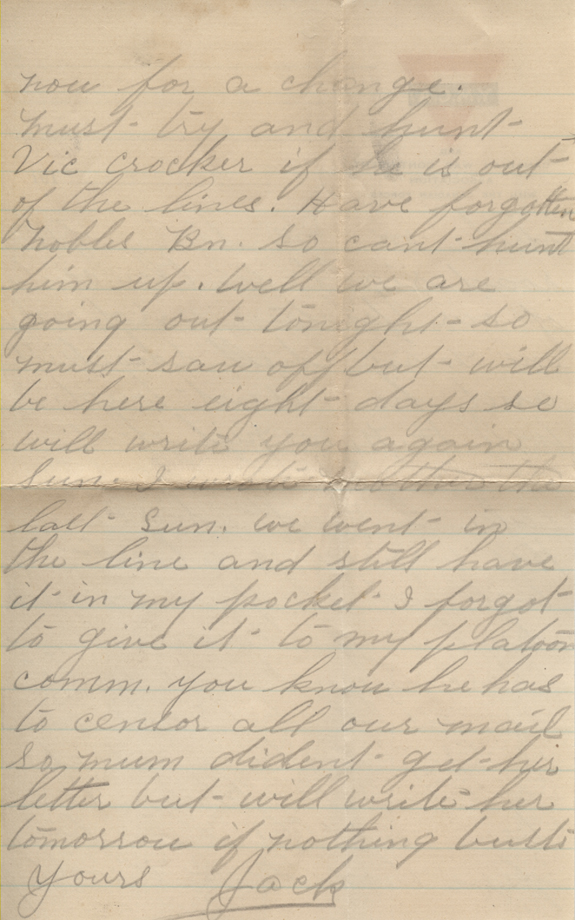 now for a change.
must try and hunt
Vic Crocker if he is out
of the lines. Have forgotten
Nobles Bn. so cant hunt
him up. Well we are
going out tonight so
must saw off but will
be here eight days so
will write you again
Sun. I wrote mother the
last Sun. we went in
the line and still have
it in my pocket I forgot
to give it to my platoon
comm. you know he has
to censor all our mail
so mum dident get her
letter but will write her
tomorrow if nothing busts
Yours Jack